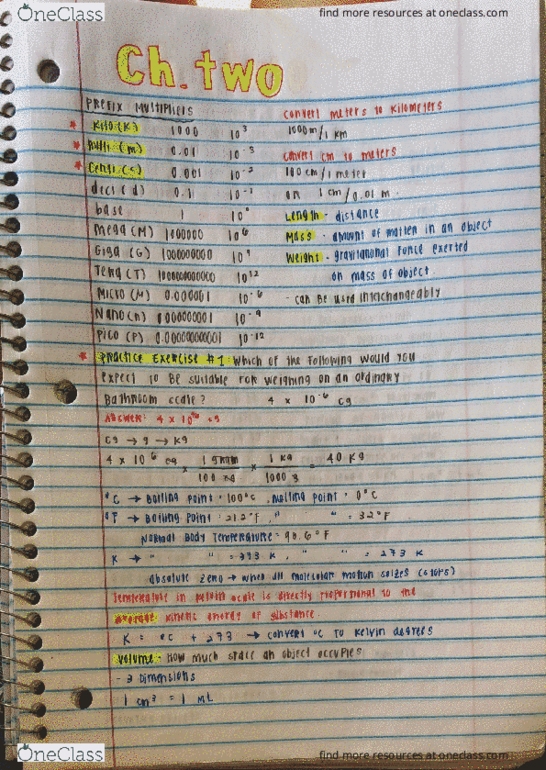 OneClass
find more resources at oneclass.com
Ch. two
Prefix Multipliers
Convert meters to Kilometers
* Kilo (K) 1000 10³ 1000m/1 km
* Milli (m) 0.01 10⁻³ Convert cm to meters
* Centi (c) 0.001 10⁻² 100 cm/1 meter
deci (d) 0.1 10⁻¹ or 1 cm/0.01 m
base 1 10⁰ Length - distance
Mega (M) 1000000 10⁶ Mass - amount of matter in an object
Giga (G) 1000000000 10⁹ Weight - gravitational force exerted
Tera (T) 1000000000000 10¹² on mass of object
Micro (M) 0.000001 10⁻⁶ - can be used interchangeably
Nano (n) 10⁻⁹
Pico (P) 0.00000000001 10⁻¹²
* Practice Exercise #1: Which of the following would you
expect to be suitable for weighing on an ordinary
Bathroom scale? 4 x 10⁻⁶ cg
Answer: 4 x 10⁶ cg
cg → g → Kg
4 x 10⁶ cg x 1 gram/100 cg x 1 Kg/1000 g = 40 Kg
°C → Boiling point · 100°C . melting point · 0°C
°F → Boiling point 212°F, " " = 32°F
Normal Body Temperature = 98.6°F
K → " " = 373 K , " " = 273 K
absolute zero → when all molecular motion seizes (stops)
temperature in kelvin scale is directly proportional to the
average kinetic energy of substance.
K = °C + 273 → convert °C to Kelvin degrees
Volume - How much space an object occupies
- 3 Dimensions
1 cm³ = 1 mL
OneClass
find more resources at oneclass.com